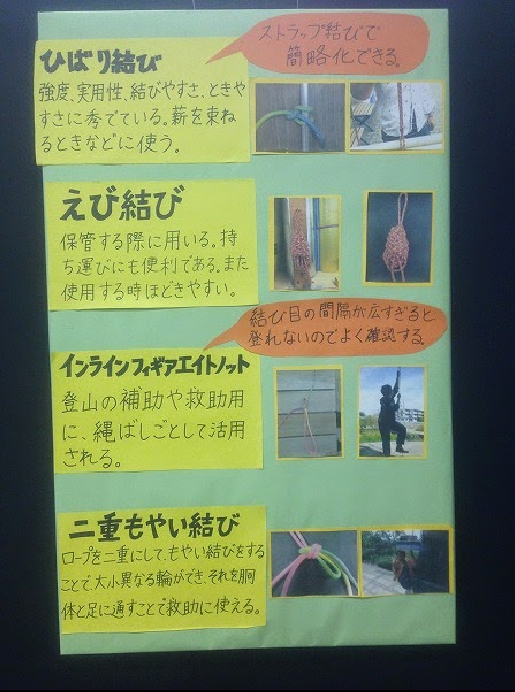 ストラップ結びで
簡略化できる。
ひばり結び
強度、実用性、結びやすさ、ときや
すさに秀でている。薪を束ね
るときなどに使う。
えび結び
保管する際に用いる。持
ち運びにも便利である。また
使用する時ほどきやすい。
結び目の間隔が広すぎると
登れないのでよく確認する。
インラインフィギアエイトノット
登山の補助や救助用
に、縄ばしごとして活用
される。
二重もやい結び
ロープを二重にして、もやい結びをする
ことで、大小異なる輪ができ、それを胴
体と足に通すことで救助に使える。